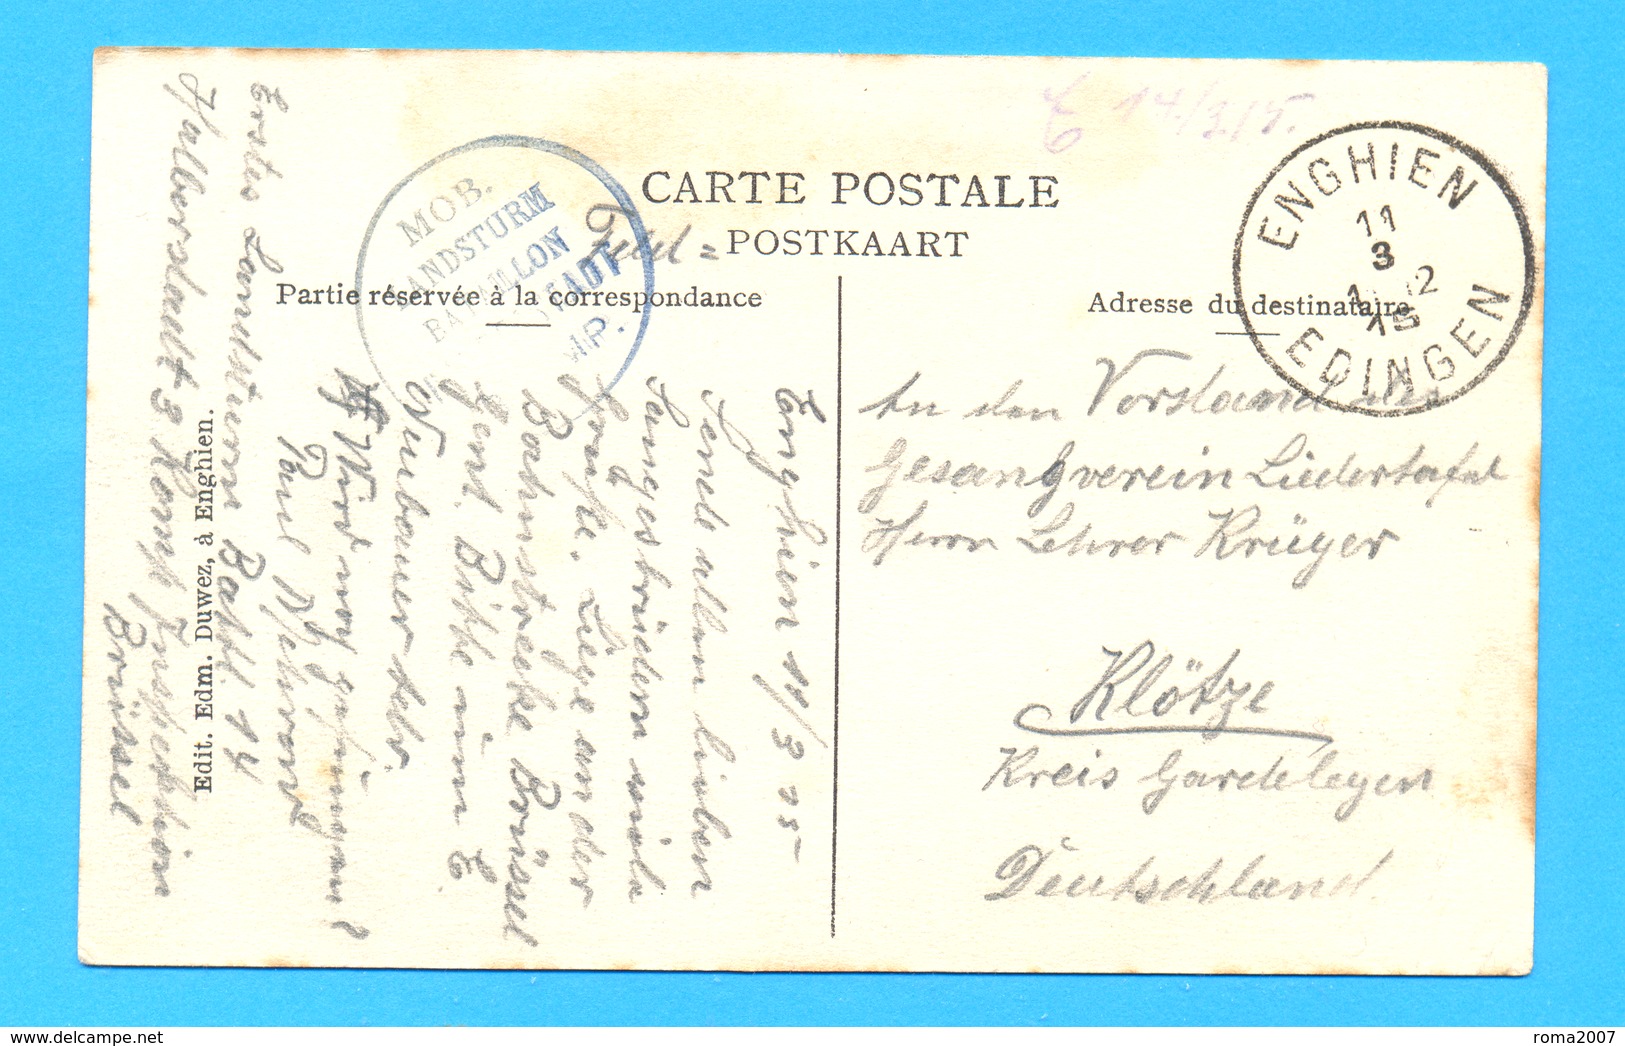 E 14/3 15.
CARTE POSTALE
Feld = POSTKAART
Partie réservée à la correspondance
Adresse du destinataire
MOB.
LANDSTURM
BATAILLON
ENGHIEN
11
3
12
15
EDINGEN
An den Vorstand des
Gesangverein Liedertafel
Herrn Lehrer Krüger
Klötze
Kreis Gardelegen
Deutschland
Enghien 11/3 15
Sende allen lieben
Sangesbrüdern viele
Grüße. Liege an der
Bahnstrecke Brüssel
Gent. Bitte um
Wird noch gesungen?
Paul
Erstes Landsturm Batl. 14
Halberstadt 3 Komp Inspektion
Brüssel
Edit. Edm. Duwez, à Enghien.
roma2007
www.delcampe.net